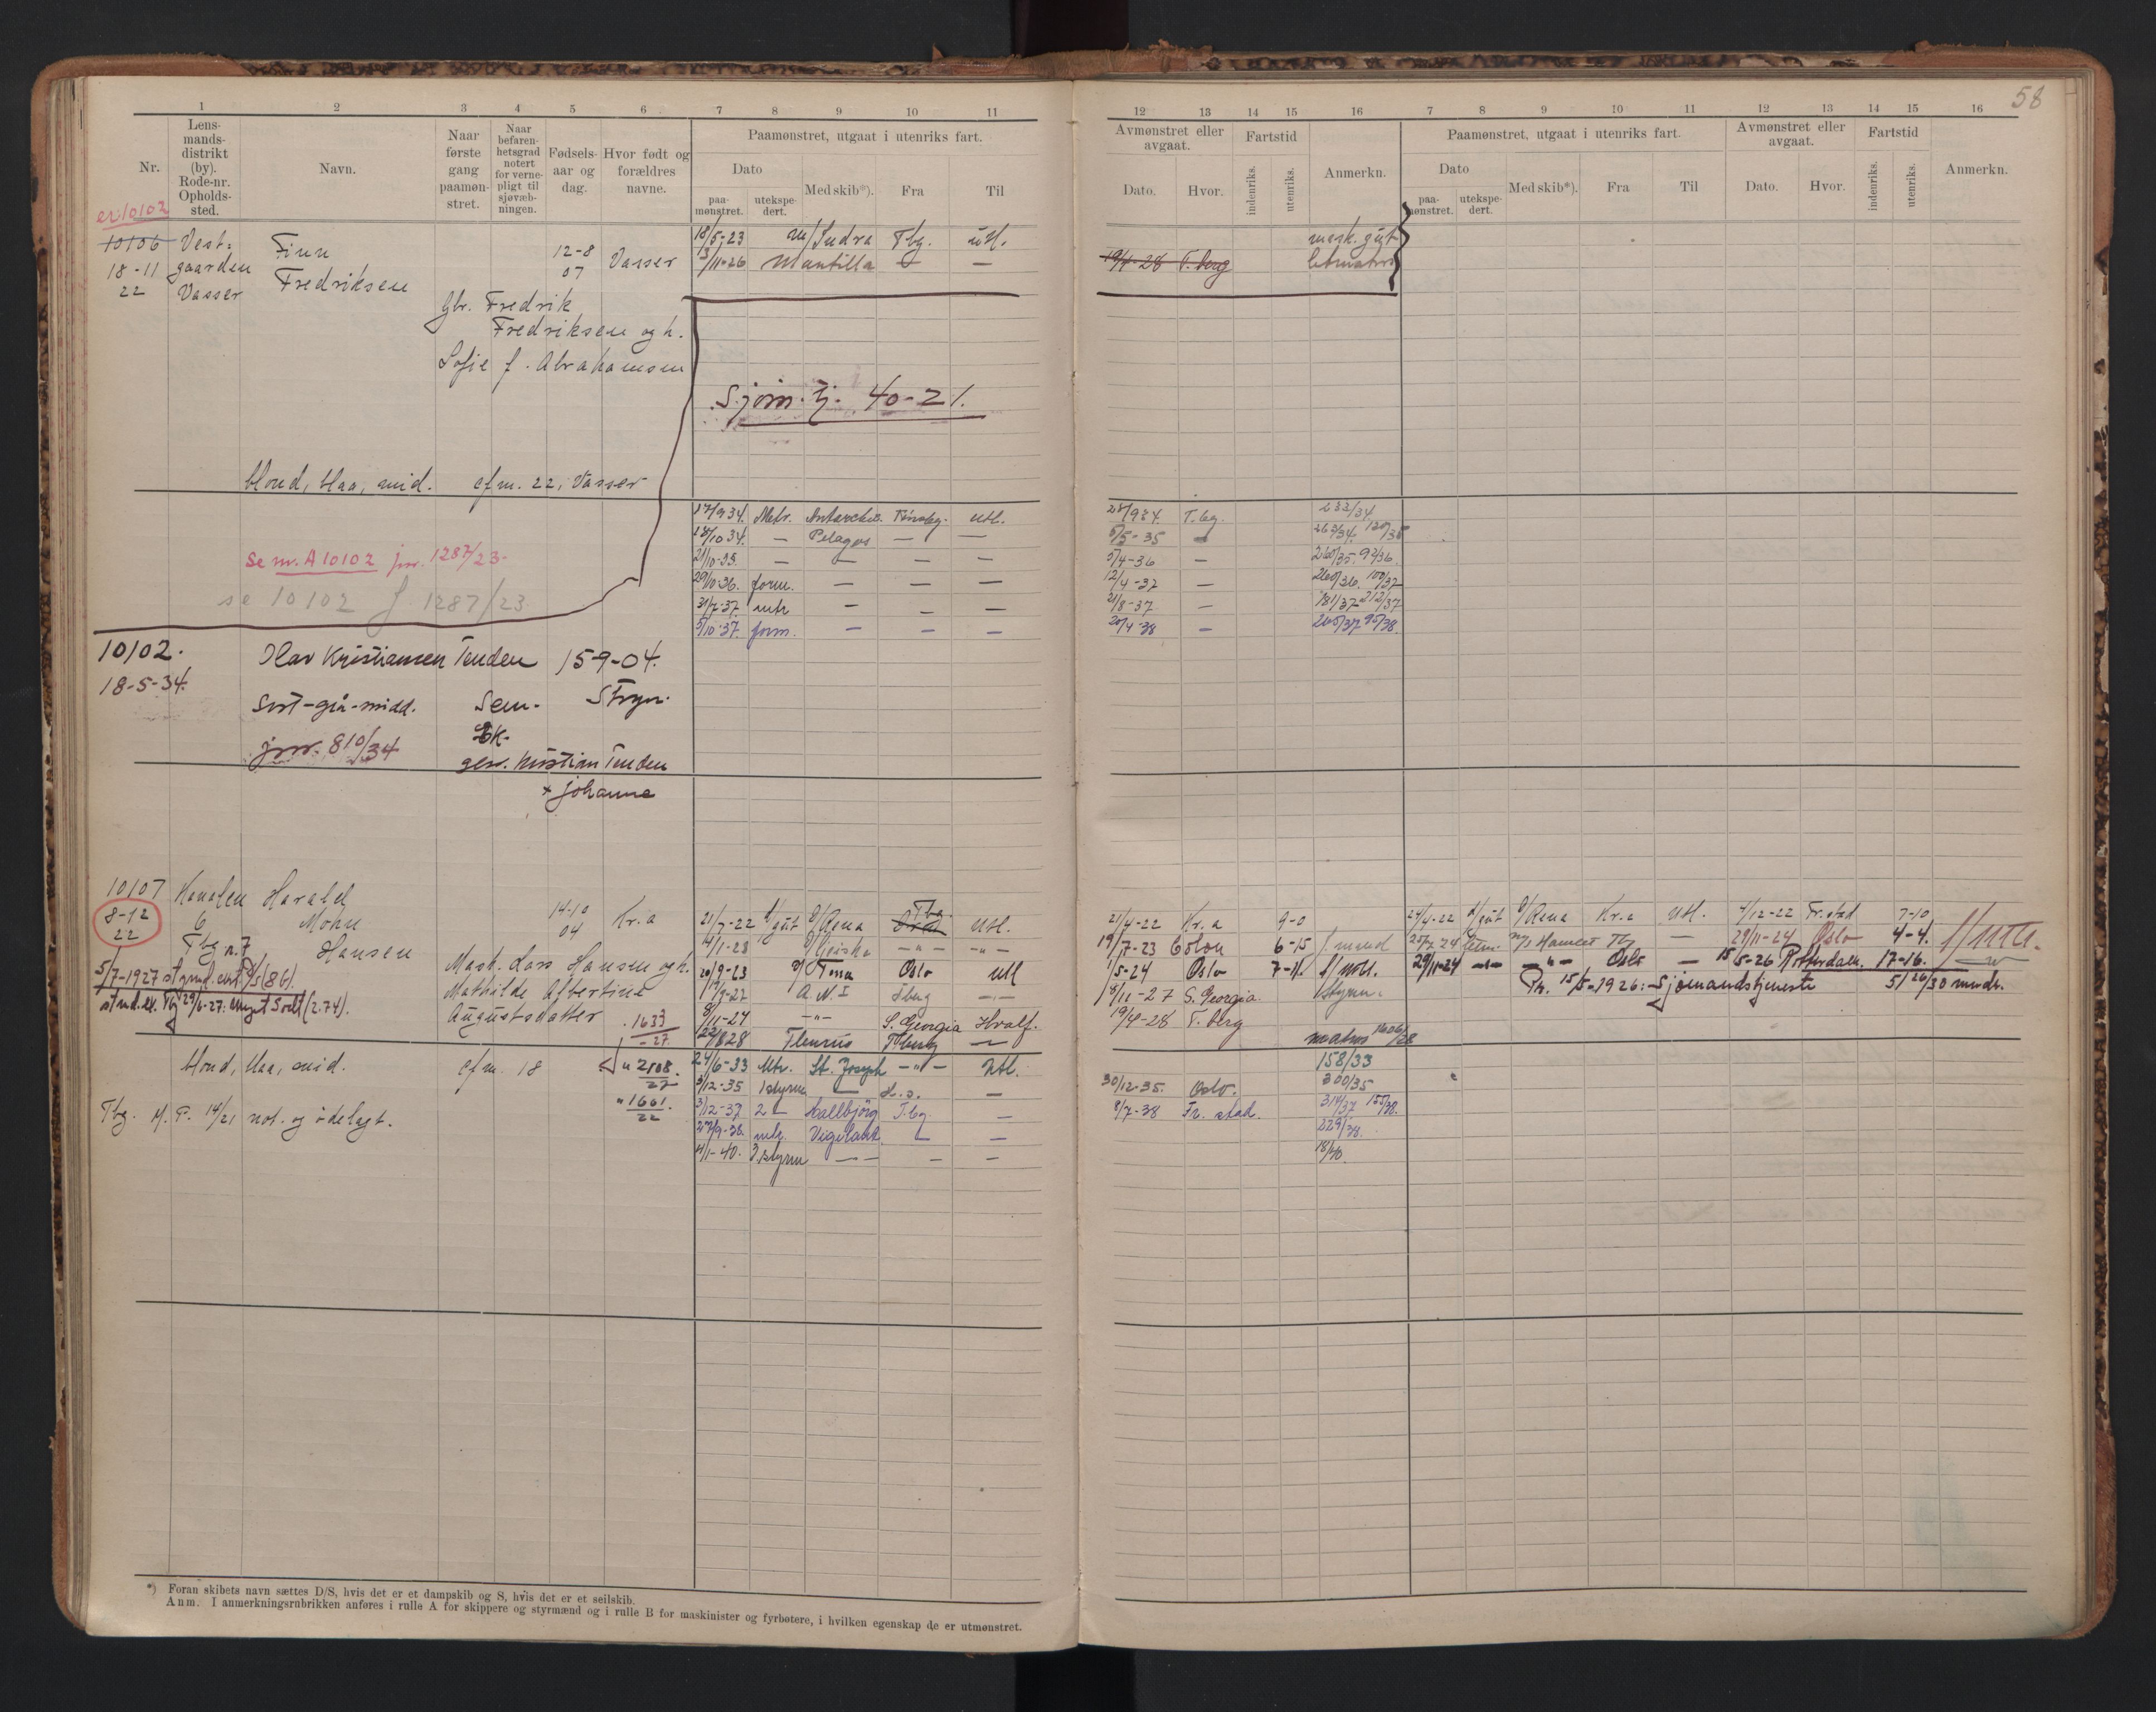 58
1 2 3 4 5 6 7 8 9 10 11
12 13 14 15 16 7 8 9 10 11 12 13 14 15 16
Nr.
Lens-
mands-
distrikt
(by).
Rode-nr.
Opholds-
sted.
Navn.
Naar
første
gang
paamøn-
stret.
Naar
befaren-
hetsgrad
notert
for verne-
pligt til
sjøvæb-
ningen.
Fødsels-
aar og
dag.
Hvor født og
forældres
navne.
Paamønstret, utgaat i utenriks fart.
Dato
paa-
mønstret.
utekspe-
dert.
Med skib*).
Fra
Til
Avmønstret eller
avgaat.
Dato.
Hvor.
Fartstid
indenriks.
utenriks.
Anmerkn.
Paamønstret, utgaat i utenriks fart.
Dato
paa-
mønstret.
utekspe-
dert.
Med skib*).
Fra
Til
Avmønstret eller
avgaat.
Dato.
Hvor.
Fartstid
indenriks.
utenriks.
Anmerkn.
er 10102
10106 Vest= Finn 12-8 Vasser 18/5-23 m/Indra Tbg. utl. mask. gut
18-11 gaarden Fredriksen 07 13/11-26 Mantilla — — 19/4-28 T.berg letmatros
22 Vasser
Gbr. Fredrik
Fredriksen og h.
Sofie f. Abrahamsen
Sjøm. tj. 40-21.
blond, blaa, mid. cfm. 22, Vasser
17/9 34. Matr. Antarctic. Tønsbg. utl. 28/9 34. T.bg. 233/34.
12/10 34. — Pelagos — — 5/5-35 — 263/34. 120/35
Se nr. A 10102 jnr. 1287/23-
21/10-35. — — — — 5/4-36 — 260/35. 92/36.
20/10-36. form. — — — 12/4-37 — 260/36. 100/37
se 10102 J 1287/23
31/7-37. mtr — — — 21/8-37 — 181/37 212/37
5/10-37. form. — — — 20/4-38 — 265/37 95/38.
10102. Olav Kristiansen Tenden 15-9-04.
18-5-34.
Sort-grå-midd. Sem- Stryn.
jnr. 810/34
gbr. Kristian Tenden
+ Johanne
10107 Kanalen Harald 14-10 Kr.a
8-12 6 Mohn 04
22 Tbg n. 7 Hansen
21/7-22 d/gut D/Rena Tbg. Utl. 21/4-22 Kr.a 9-0 24/4-22 d/gut D/Rena Kr.a Utl. 4/12-22 Fr.stad 7-10
14/1-28 D/Geisha —"— —"— 19/7-23 Colon 6-15 25/7 24 letm. M/S Hamlet Tbg — 29/11-24 Oslo 4-4. f/Utl.
Mask. Lars Hansen og h.
Mathilde Albertine
Augustsdatter
20/9-23 D/Tma Oslo Utl /5-24 Oslo 7-11. f/Utl. 29/11-24 —"— —"— Oslo — 15/5-26 Rotterdam. 17-16.
5/7-1927 styrmd.ext. 2/5(86).
19/9-27 A.N.I Tberg —"— 8/11-27 S. Georgia. Styrm. Pr. 15/5-1926: Sjømandstjeneste 5/ 26/30 mndr.
8/11-27 —"— S. Georgia Hvalf. 19/4-28 T.berg
1633/27 22/8 28 Fleurus T.berg — matros 1606/28
blond, blaa, mid. cfm. 18 " 2108/27 24/6-33 Mtr. St. Joseph —"— Utl. 158/33
3/12-35 1styrm — H.s. — 30/12-35. Oslo. 300/35
Tbg. M. P. 14/21 not. og ødelagt. " 1661/22 3/12-37 2 — Hallbjørg T.bg. — 8/7-38 Fr. stad. 314/37 155/38.
27/9-38. mtr. Vigilant. — — 229/38.
4/1-40. 3.styrm — — — — 18/40.
*) Foran skibets navn sættes D/S, hvis det er et dampskib og S, hvis det er et seilskib.
Anm. I anmerkningsrubrikken anføres i rulle A for skippere og styrmænd og i rulle B for maskinister og fyrbøtere, i hvilken egenskap de er utmønstret.